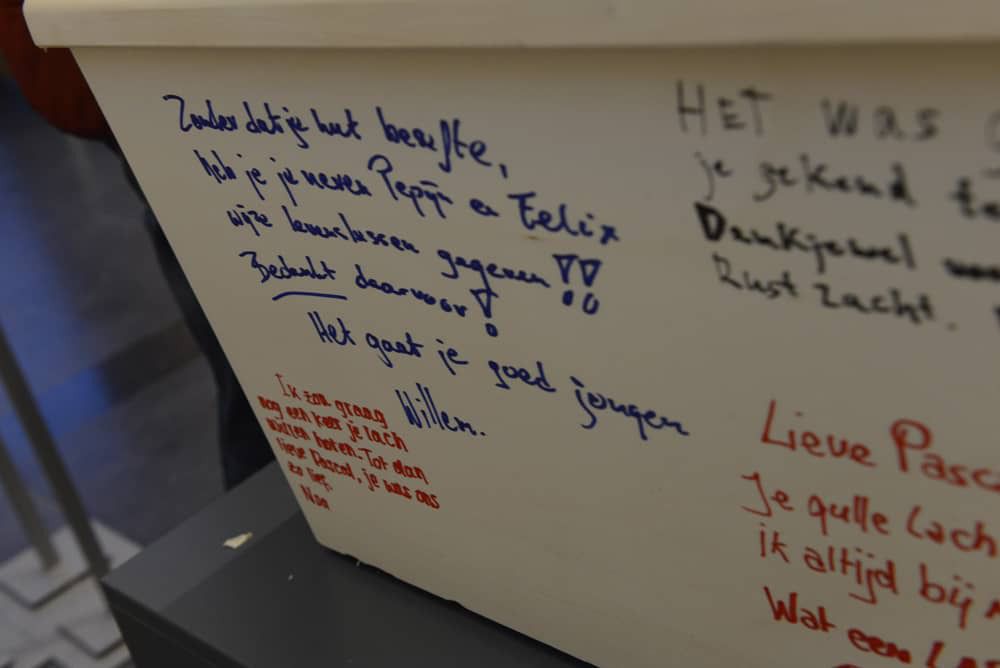 Zonder dat je het besefte,
heb je je neven Pepijn en Felix
wijze levenslessen gegeven!!
Bedankt daarvoor!
Het gaat je goed jongen
Willem.
Ik zou graag
nog een keer je lach
willen horen. Tot dan
lieve Pascal, je was ons
zo lief.
Noa
HET WAS
je gekend te
Dankjewel
Rust zacht.
Lieve Pasc
Je gulle lach
ik altijd bij
Wat een